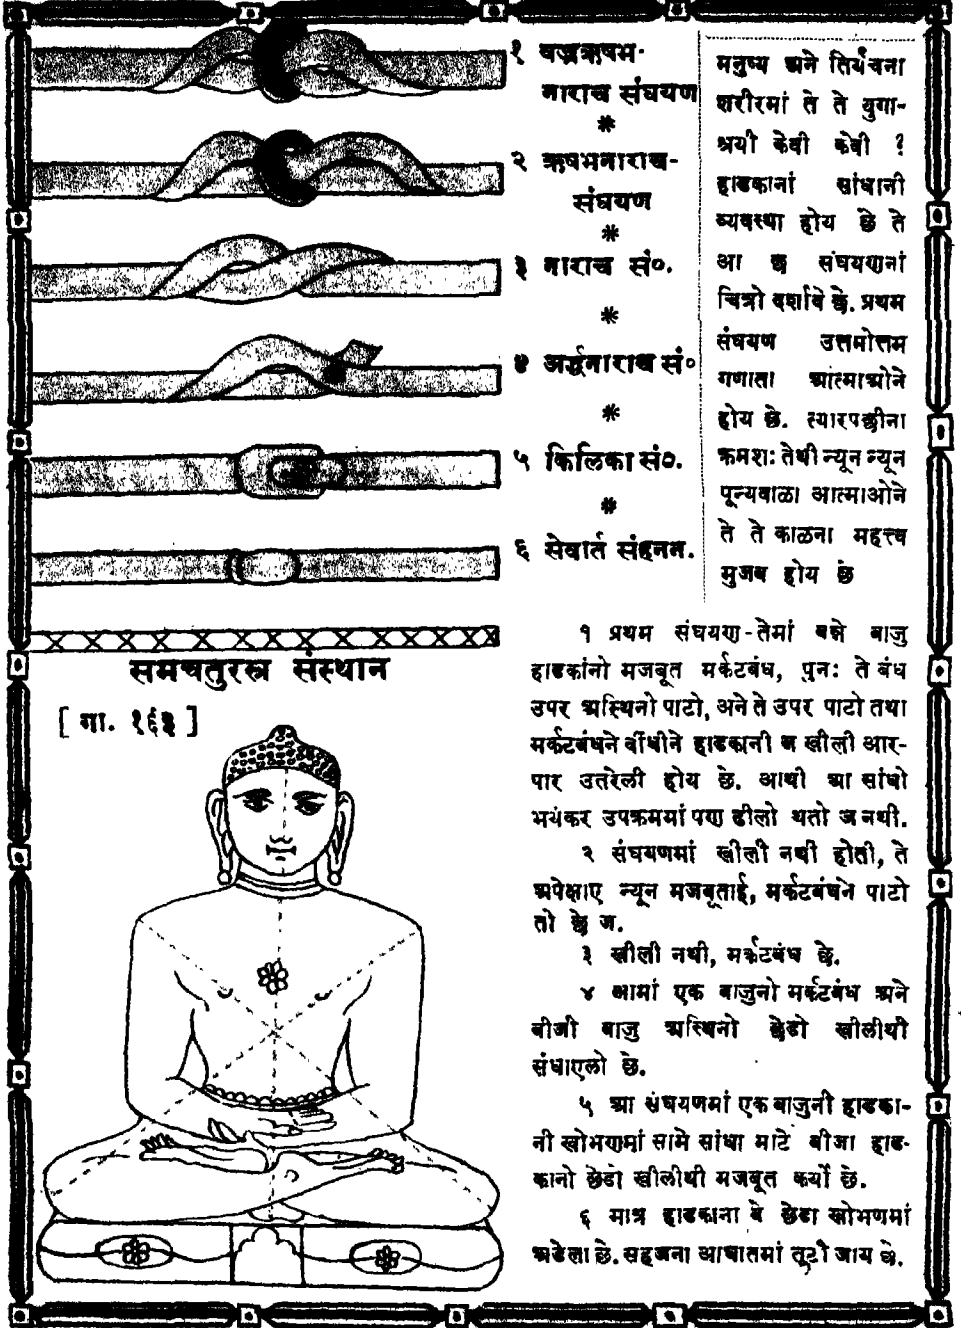 १ वज्रऋषभ-
नाराच संघयण
*
२ ऋषभनाराच-
संघयण
*
३ नाराच सं०.
*
४ अर्द्धनाराच सं०
*
५ किलिका सं०.
*
६ सेवार्त संहनन.
मनुष्य अने तिर्यंचना
शरीरमां ते ते युगा-
श्रयी केवी केवी ?
हाडकानां सांधानी
व्यवस्था होय छे ते
आ छ संघयणनां
चित्रो दर्शावे छे. प्रथम
संघयण उत्तमोत्तम
गणाता आत्माओने
होय छे. त्यारपछीना
क्रमशः तेथी न्यून न्यून
पून्यवाळा आत्माओने
ते ते काळना महत्त्व
मुजब होय छे
समचतुरस्र संस्थान
[ गा. १६३ ]
१ प्रथम संघयण-तेमां बन्ने बाजु
हाडकांनो मजबूत मर्कटबंध, पुनः ते बंध
उपर अस्थिनो पाटो, अने ते उपर पाटो तथा
मर्कटबंधने वींधीने हाडकानी ज खीली आर-
पार उतरेली होय छे. आथी आ सांधो
भयंकर उपक्रममां पण ढीलो थतो ज नथी.
२ संघयणमां खीली नथी होती, ते
अपेक्षाए न्यून मजबूताई, मर्कटबंधने पाटो
तो छे ज.
३ खीली नथी, मर्कटबंध छे.
४ आमां एक बाजुनो मर्कटबंध अने
बीजी बाजु अस्थिनो छेडो खीलीथी
संधाएलो छे.
५ आ संघयणमां एक बाजुनी हाडका-
नी खोभणमां सामे सांधा माटे बीजा हाड-
कानो छेडो खीलीथी मजबूत कर्यो छे.
६ मात्र हाडकाना बे छेडा खोभणमां
अडेला छे. सहजना आघातमां तूटी जाय छे.